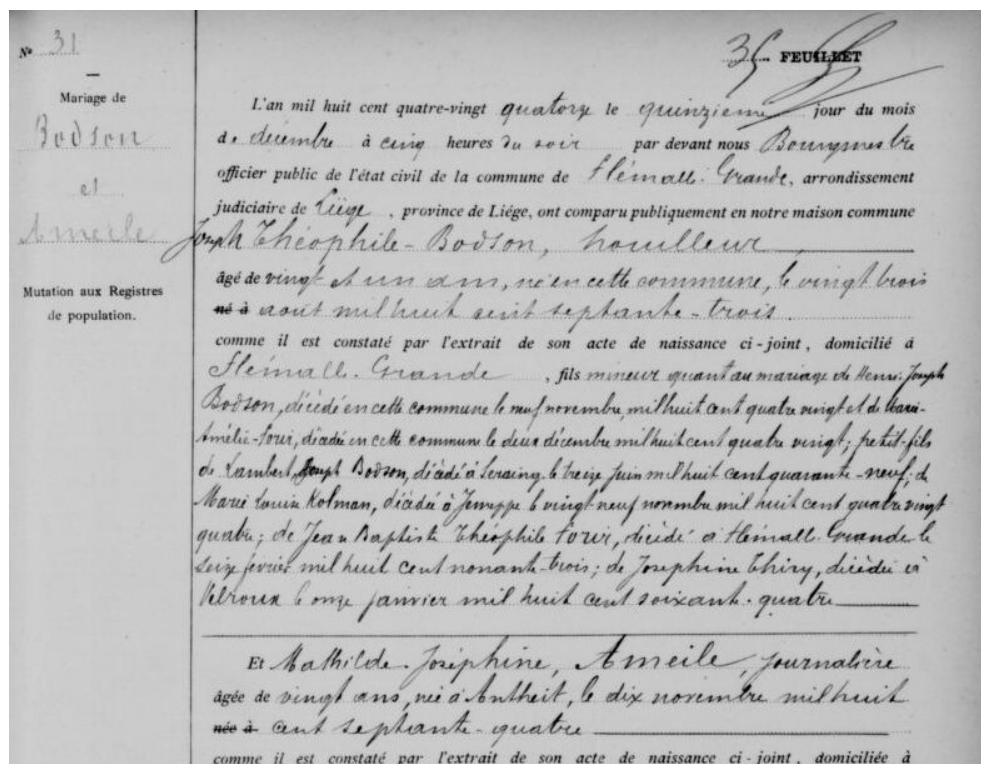 N° 31
35 FEUILLET
Mariage de
Bodson
et
Ameile
Mutation aux Registres
de population.
L'an mil huit cent quatre-vingt quatorze le quinzième jour du mois
de décembre à cinq heures du soir par devant nous Bourgmestre
officier public de l'état civil de la commune de Flémalle-Grande, arrondissement
judiciaire de Liége, province de Liége, ont comparu publiquement en notre maison commune
Joseph Théophile-Bodson, houilleur
âgé de vingt et un ans, né en cette commune, le vingt trois
né à août mil huit cent septante-trois.
comme il est constaté par l'extrait de son acte de naissance ci-joint, domicilié à
Flémalle-Grande, fils mineur quant au mariage de Henri-Joseph
Bodson, décédé en cette commune le neuf novembre, mil huit cent quatre vingt et de Marie-
Amélie-Fouir, décédée en cette commune le deux décembre mil huit cent quatre vingt; petit-fils
de Lambert, Joseph Bodson, décédé à Seraing, le treize juin mil huit cent quarante-neuf; de
Marie Louise Kolman, décédée à Jemeppe le vingt-neuf novembre mil huit cent quatre vingt
quatre; de Jean Baptiste Théophile, décédé à Flémalle-Grande le
seize février mil huit cent nonante-trois; de Joséphine Thiry, décédée à
Velroux le onze janvier mil huit cent soixante-quatre
Et Mathilde-Joséphine, Ameile, journalière
âgée de vingt ans, née à Antheit, le dix novembre mil huit
née à cent septante-quatre
comme il est constaté par l'extrait de son acte de naissance ci-joint, domiciliée à